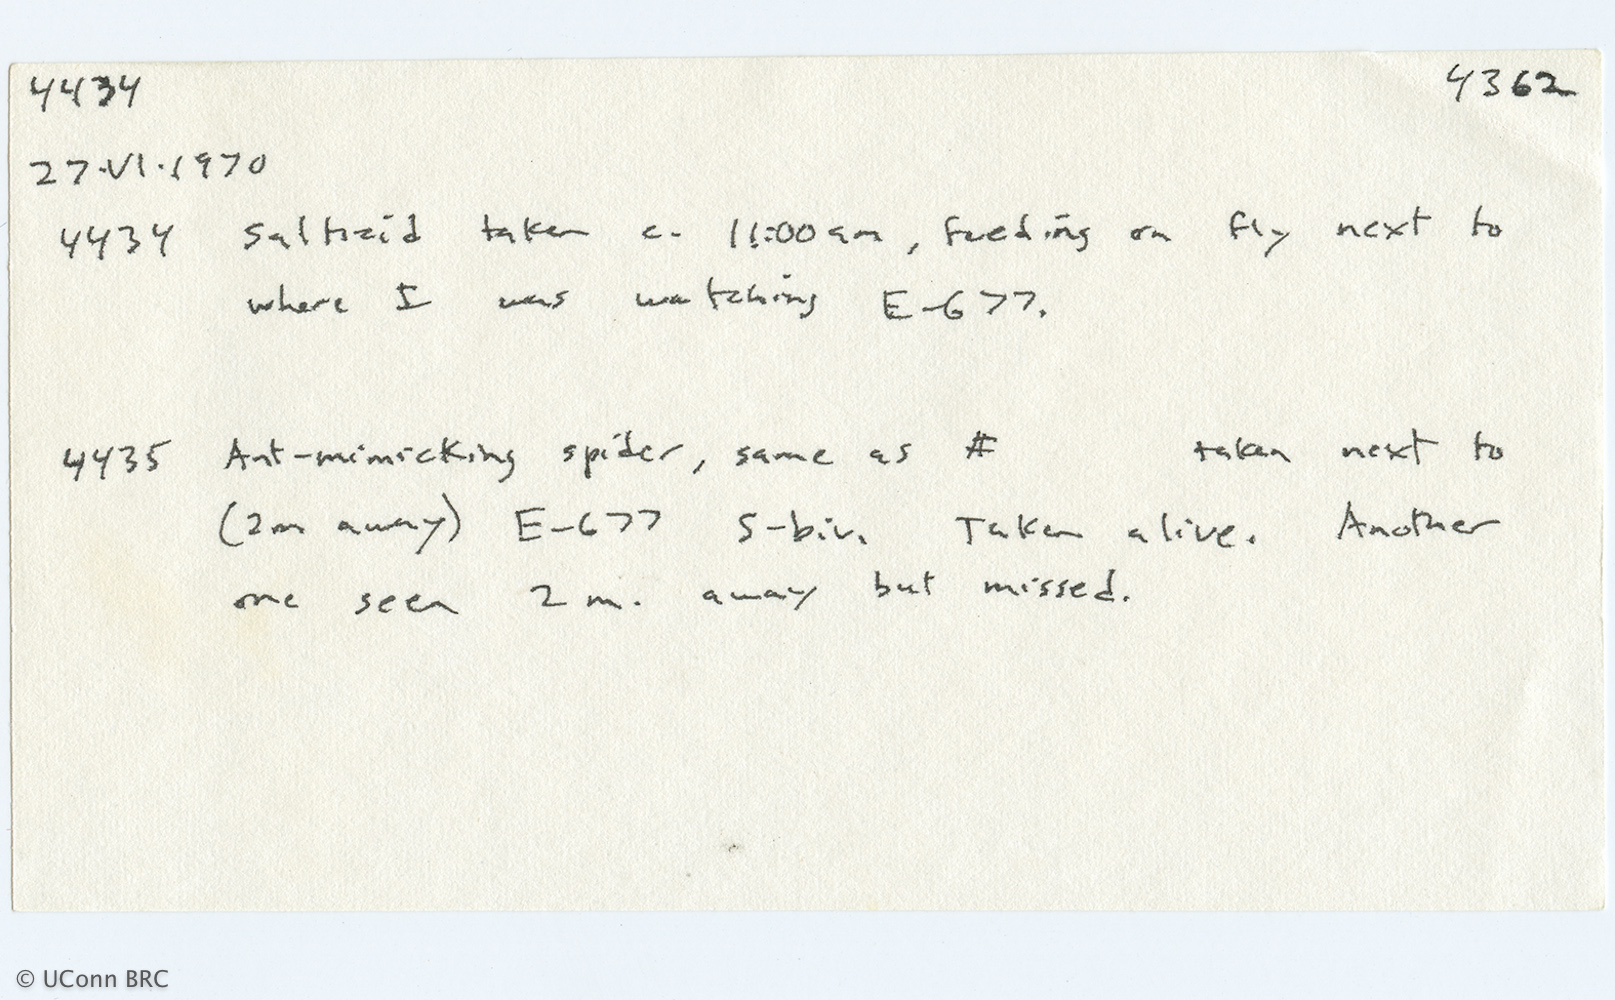 4434 4362
27.VI.1970
4434 Salticid taken c. 11:00 am, feeding on fly next to
where I was watching E-677.
4435 Ant-mimicking spider, same as # taken next to
(2m away) E-677 S-biv. Taken alive. Another
one seen 2 m. away but missed.
© UConn BRC